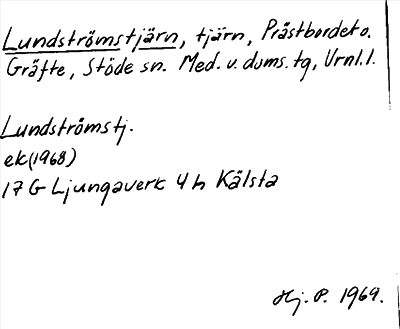 Lundströmstjärn, tjärn, Prästbordet o.
Gräfte, Stöde sn. Med. v. doms. tg, Vrnl. l.
Lundströmstj.
ek (1968)
17 G Ljungaverk 4 h Kälsta
Hj. P. 1969.